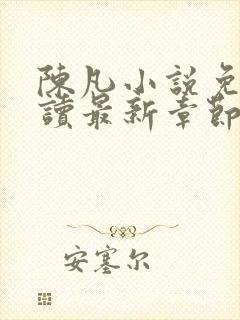 陳凡小說免
讀最新章節
安塞尔